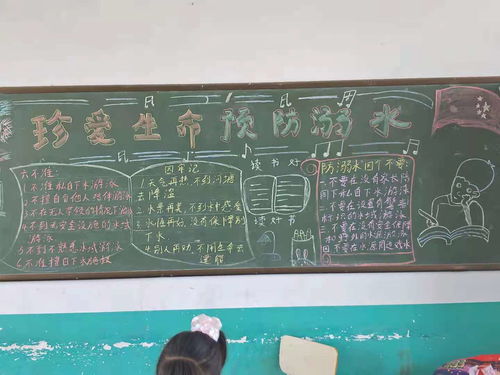 珍爱生命 预防溺水
六不准:
1.不准私自下水游泳
2.不擅自与他人结伴游泳
3.不在无人学校的情况下游泳
4.不到无安全设施的水域
游泳
5.不到不熟悉水域游泳
6.不准擅自下水施救
四牢记
1.天气再热,不到河塘
去降温
2.水景再美,不到水畔感受
3.水性再好,没有保障别
下水
4.与人再动,不用生命去
逞能
读书好
读好书
防溺水四个不要:
一.不要在没有家长陪
同下私自下水游泳
二.不要在设置有警告
标识的水域游泳
三.不要在没有安全保障
四.不要在水周边戏水